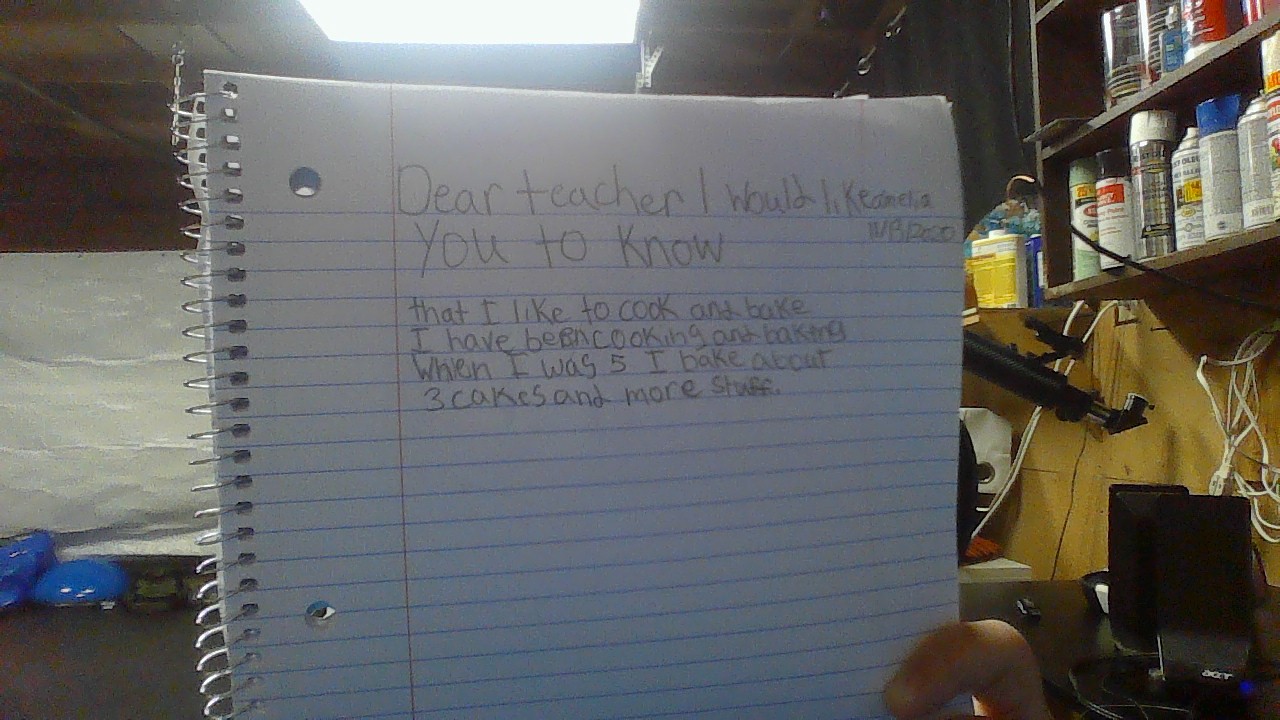 Dear teacher I Would like
You to Know
that I like to cook and bake
I have been cooking and baking
When I was 5 I bake about
3 cakes and more stuff.
acer